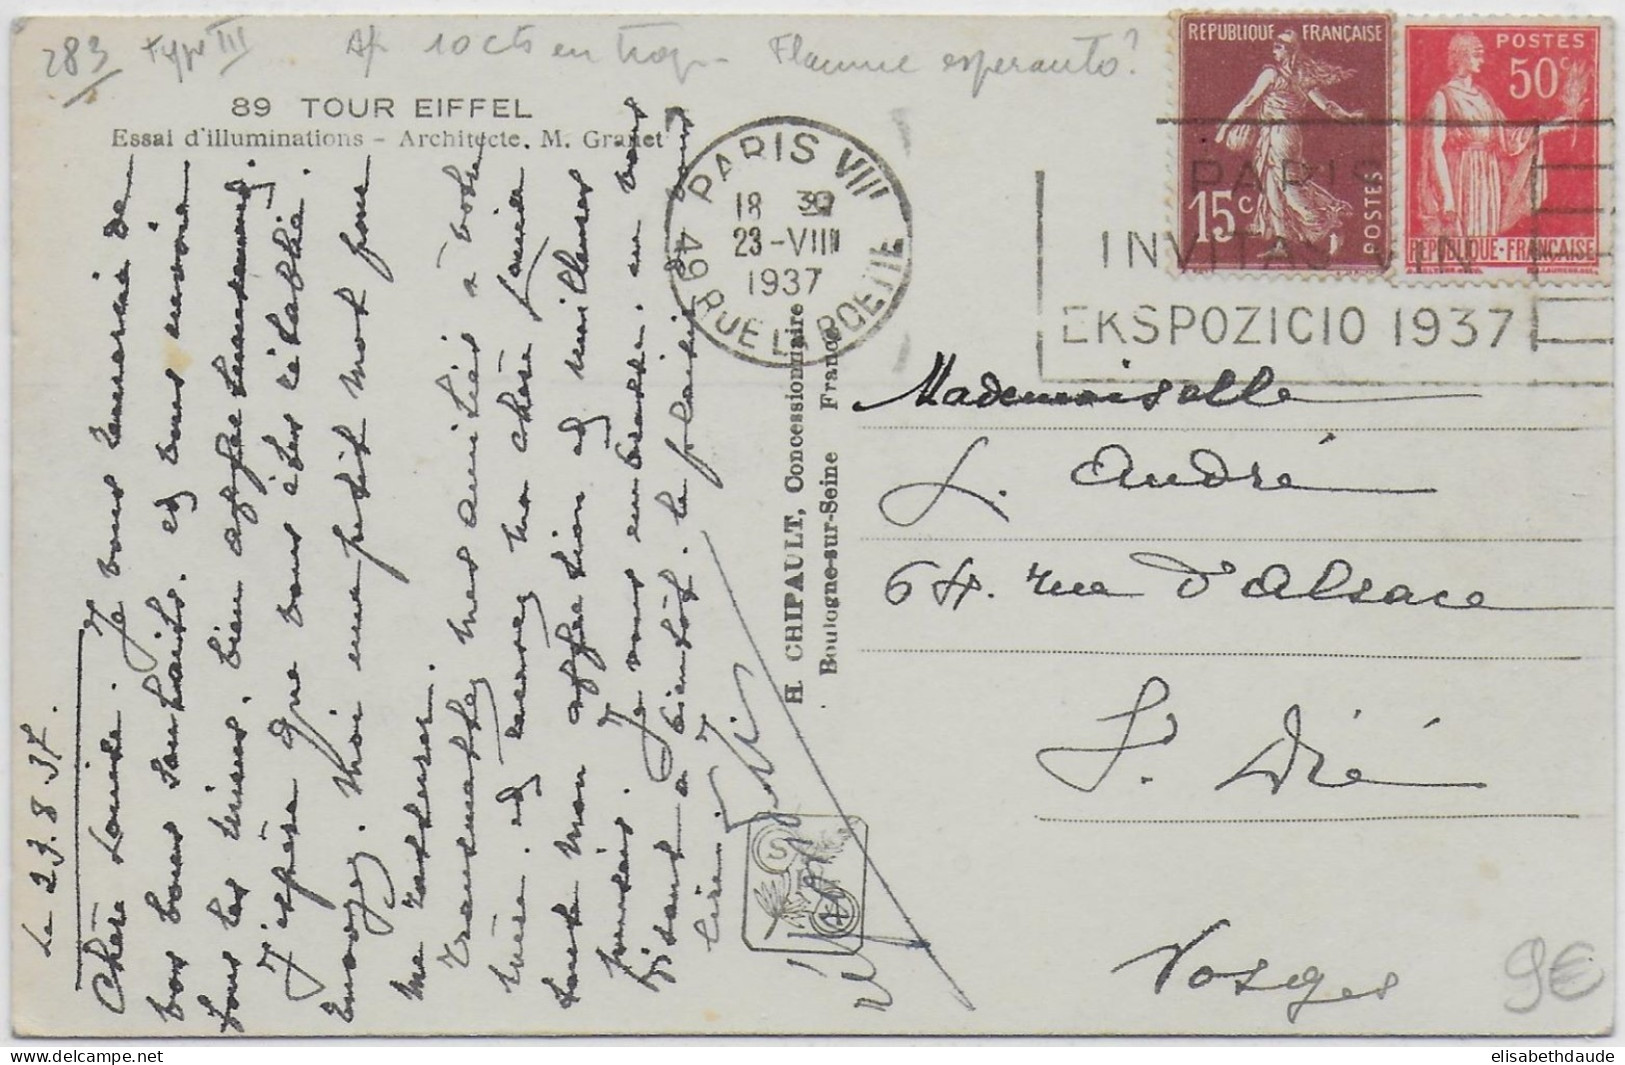 283 type III Af 10 cts en trop - Flamme esperanto?
89 TOUR EIFFEL
Essai d'illuminations - Architecte, M. Granet
PARIS VIII
18 30
23 -VIII
1937
49 RUE LA BOETIE
REPUBLIQUE FRANÇAISE
15c
POSTES
POSTES
50c
REPUBLIQUE-FRANÇAISE
PARIS
INVITAS VIN
EKSPOZICIO 1937
Le 23.8.37.
Chère Louise. Je vous remercie de
vos bons souhaits. et vous envoie
tous les miens, bien affectueusement.
J'espère que vous êtes rétablie.
Envoyez-moi un petit mot pour
me rassurer.
Transmettez mes amitiés à votre
mère. et recevez ma chère Louise
toute mon affection et meilleures
pensées. Je vous embrasse. en vous
disant à bientôt. le plaisir de vous
lire.
H. CHIPAULT, Concessionnaire
Boulogne-sur-Seine France
Mademoiselle
L. André
64. rue d'Alsace
St. Dié
Vosges
9€
elisabethdaude